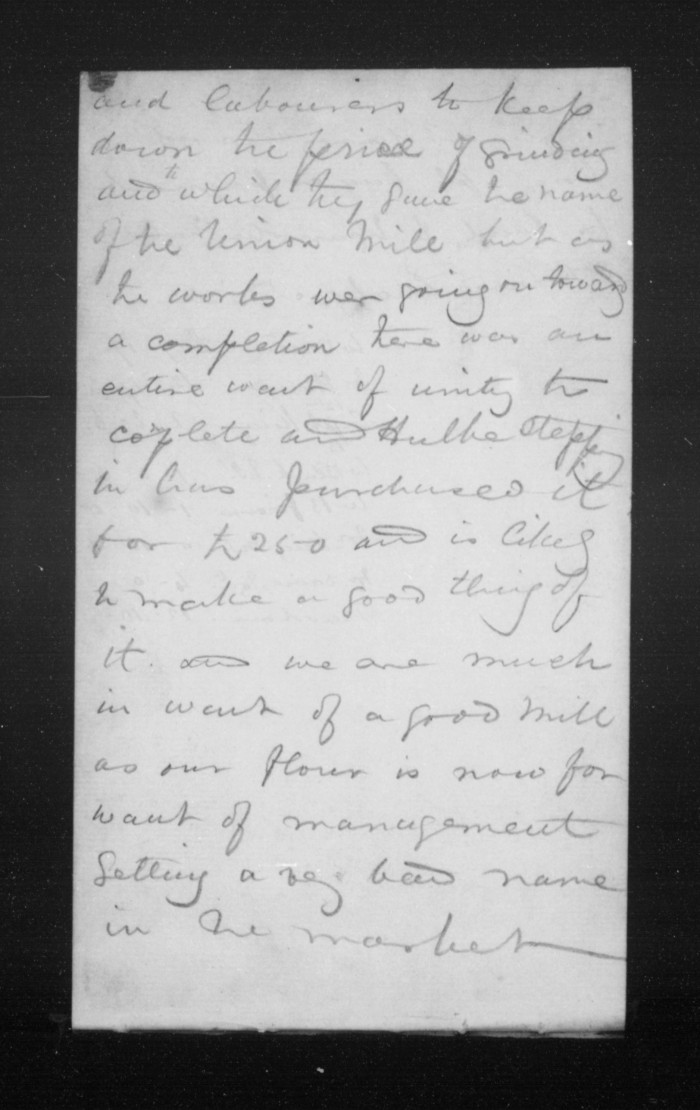 and labourers to keep
down the price of grinding
and to which they gave the name
of the Union Mill but as
the works wer going on toward
a completion there was an
entire want of unity to
coplete and Hulbe stepping
in has purchased it
for £250 and is likely
to make a good thing of
it. and we are much
in want of a good Mill
as our flour is now for
want of management
getting a very bad name
in the market